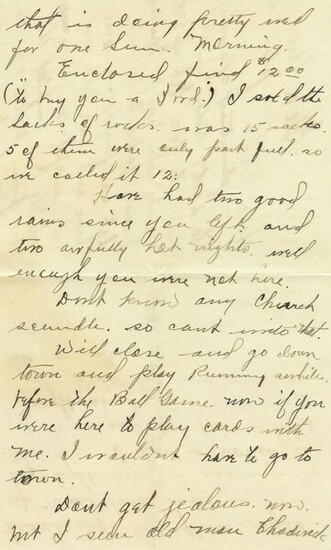 that is doing pretty well
for one Sun. Morning.
Enclosed find $12.00
("to buy you a Ford.") I sold the
sacks of rocks. was 15 sacks
5 of them were only part full. so
we called it 12.
Have had two good
rains since you left. and
two awfully hot nights. well
enough you were not here.
Dont know any Church
scandle. so cant write that.
Will close and go down
town and play Running awhile.
before the Ball Game. now if you
were here to play cards with
me. I wouldnt have to go to
town.
Dont get jealous. now.
but I seen old man Chadwick